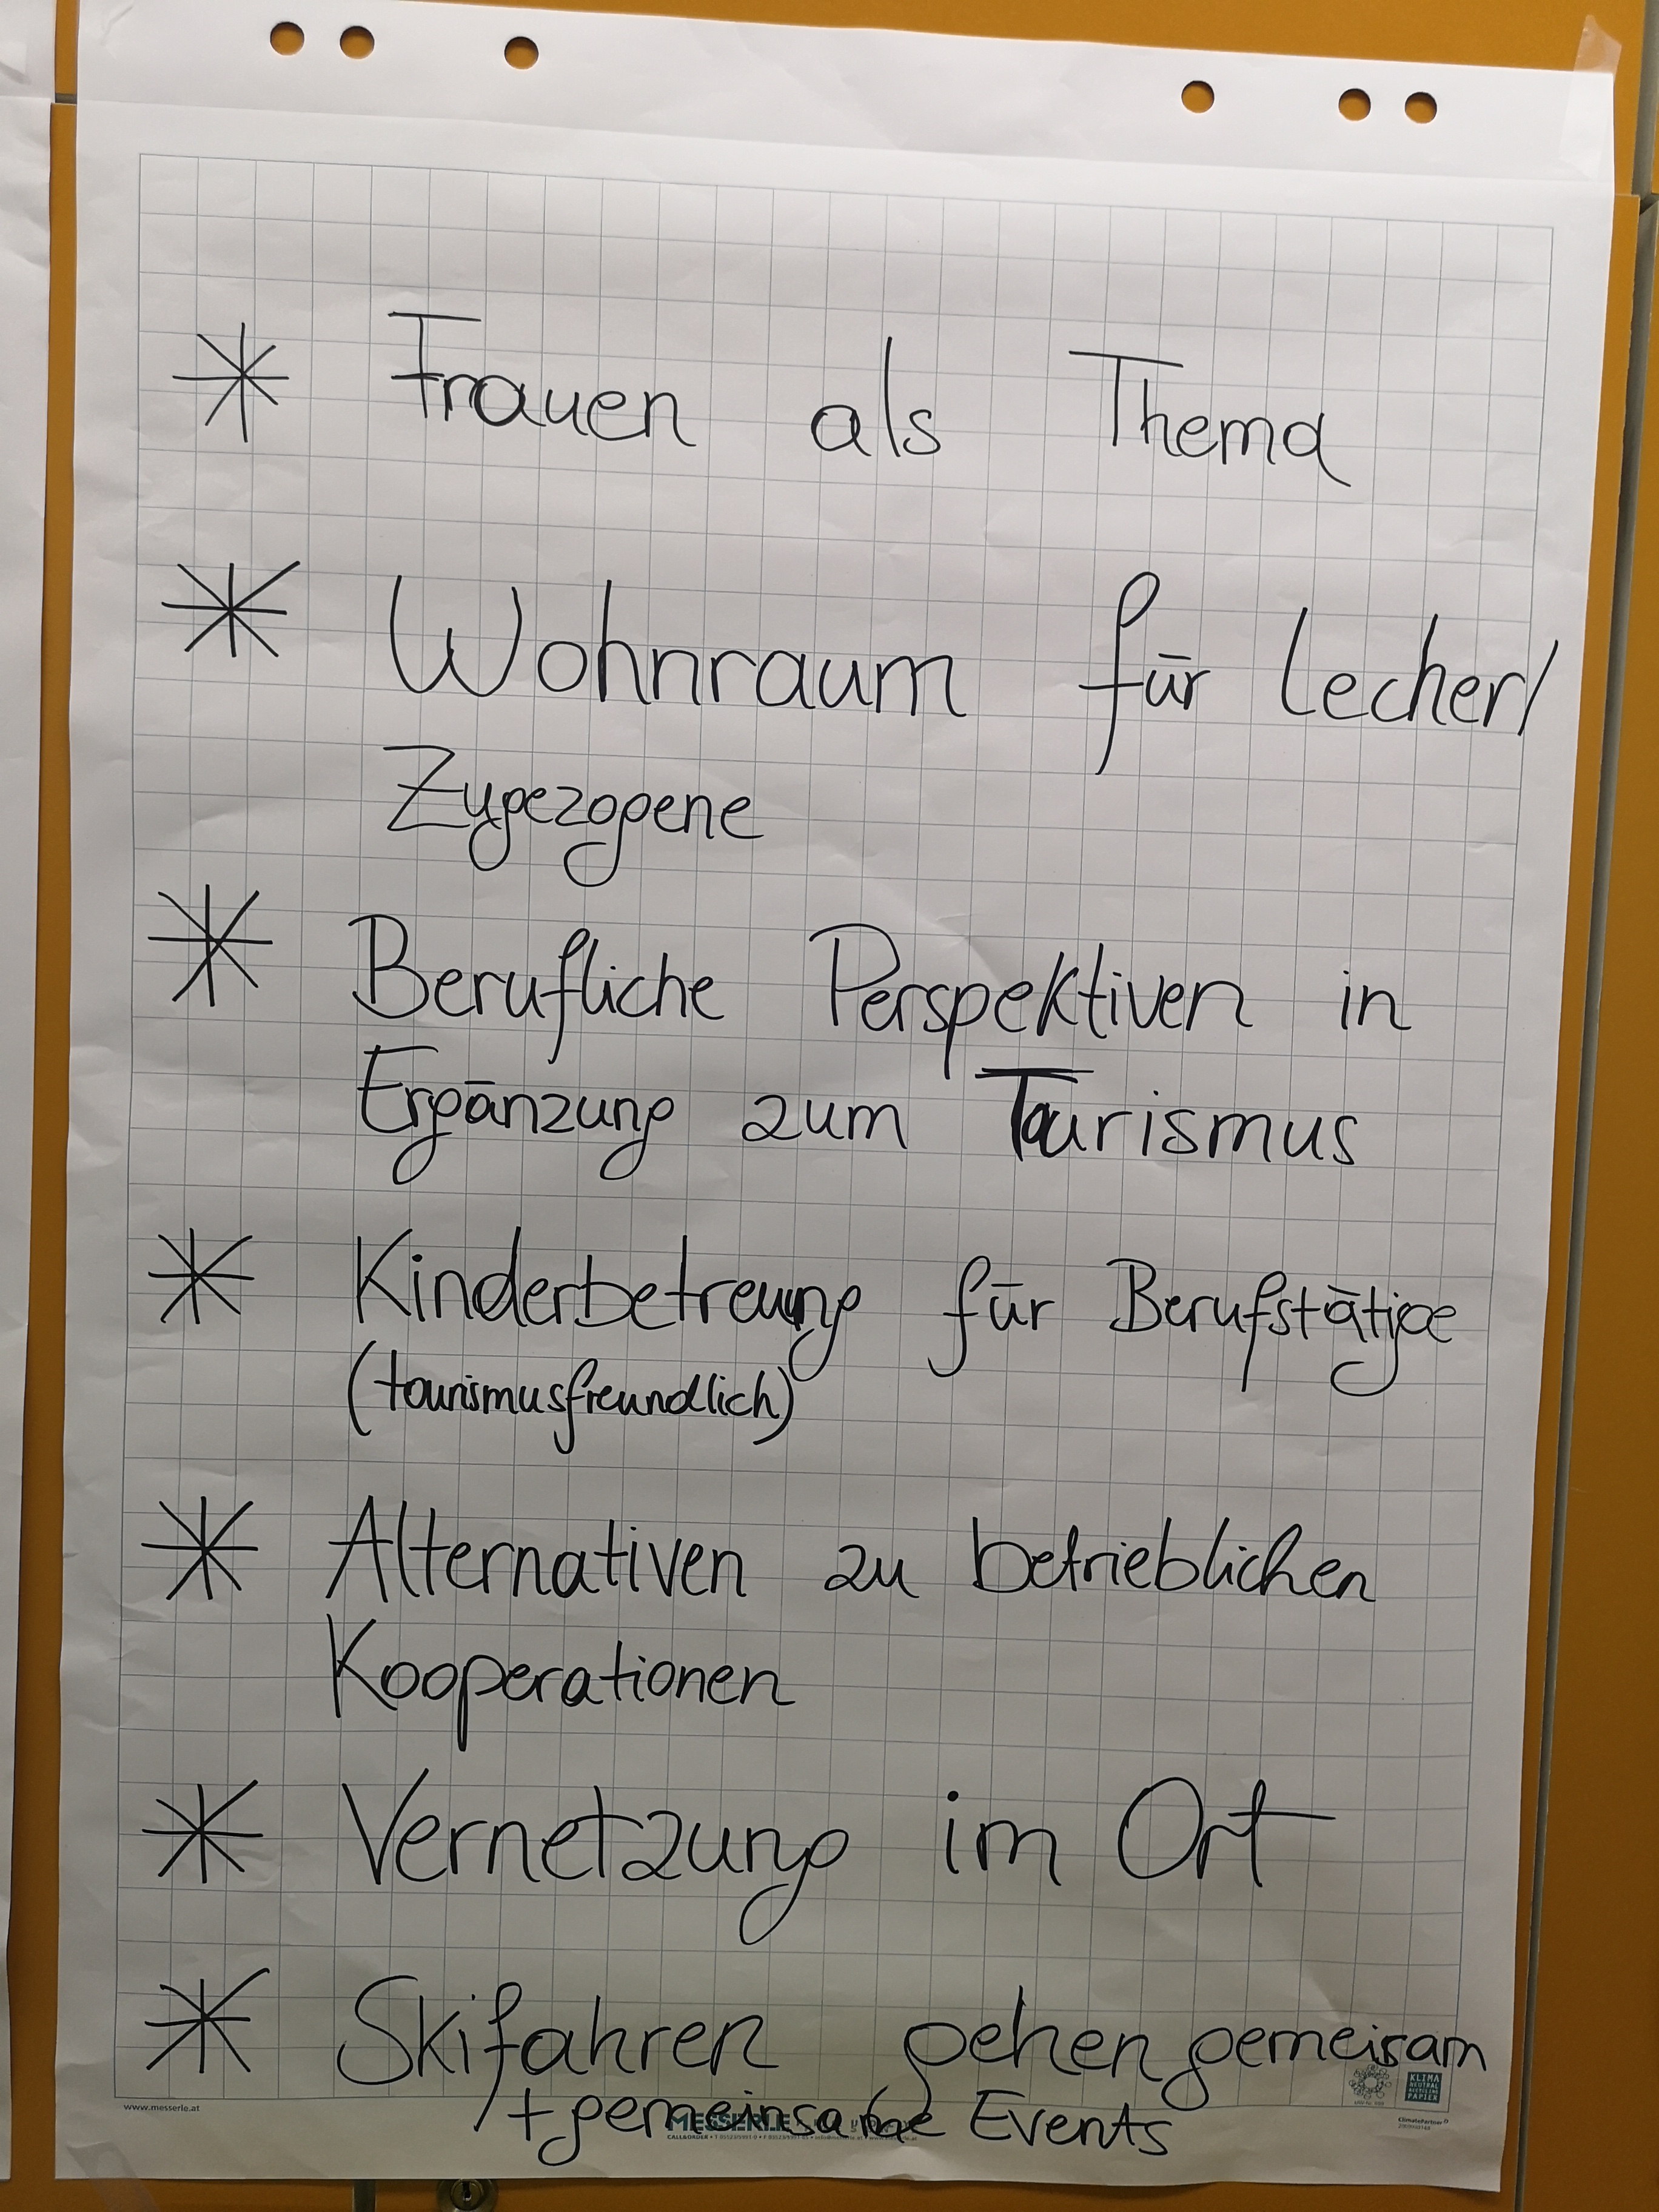 * Frauen als Thema
* Wohnraum für Lecher/
Zugezogene
* Berufliche Perspektiven in
Ergänzung zum Tourismus
* Kinderbetreuung für Berufstätige
(tourismusfreundlich)
* Alternativen zu betrieblichen
Kooperationen
* Vernetzung im Ort
* Skifahren gehen gemeisam
+ gemeinsame Events
www.messerle.at
MESSERLE
KLIMA
NEUTRAL
RECYCLING
PAPIER
ClimatePartner